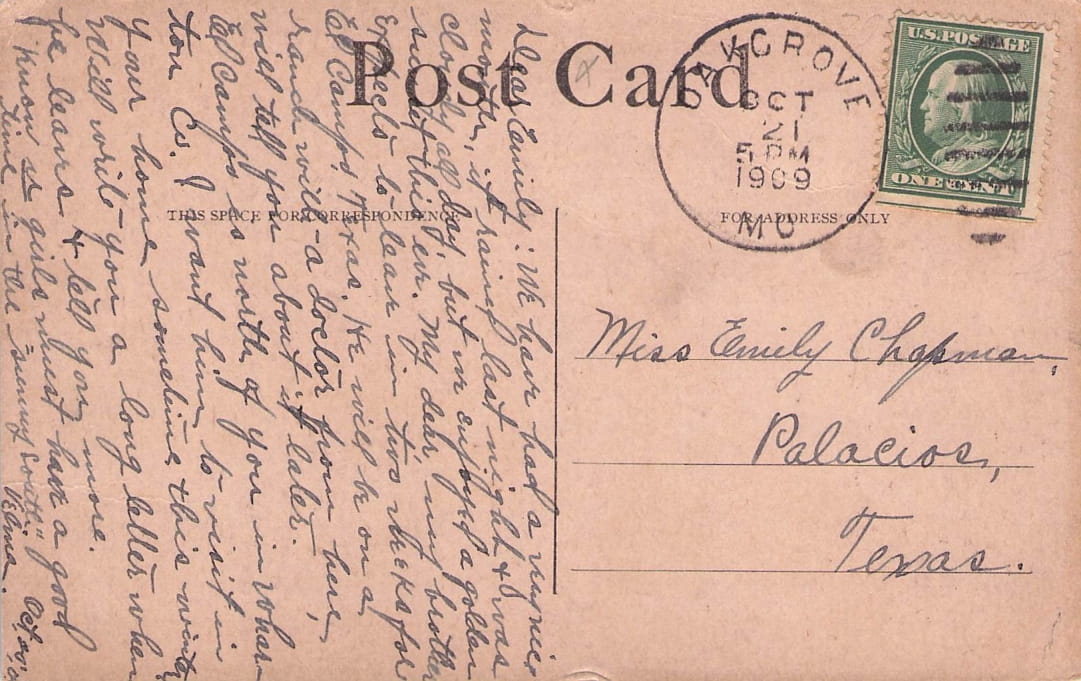 Post Card
THIS SPACE FOR CORRESPONDENCE
FOR ADDRESS ONLY
OAK GROVE
OCT
21
5 PM
1909
MO
U.S. POSTAGE
ONE CENT
Miss Emily Chapman,
Palacios,
Texas.
Dear Emily: We have had a
month, it rained last night & was
cloudy all day, but we enjoyed a golden
sunset this eve. My dear, my brother
expects to leave in two weeks for
El Campo, Texas. He will be on a
ranch with a doctor from here,
will tell you about it later.
El Campo is north of you in Whar-
ton Co. I want him to visit in
your home sometime this winter
Will write you a long letter when
he leaves & tell you more.
I know us girls must have a good
time in the "sunny South."
Velma.